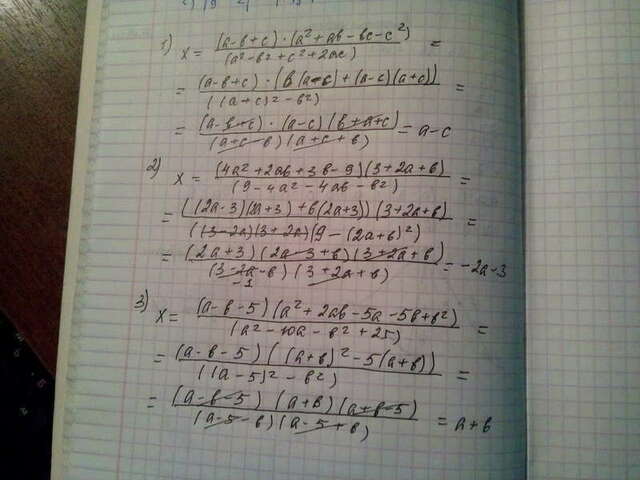 1) x = (a-в+c)·(a²+ab-вc-c²) / (a²-в²+c²+2ac) =
= (a-в+c)·(в(a-c)+(a-c)(a+c)) / ((a+c)²-в²) =
= (a-в+c)·(a-c)(в+a+c) / (a+c-в)(a+c+в) = a-c
2) x = (4a²+2ab+3в-9)(3+2a+в) / (9-4a²-4ab-в²) =
= ((2a-3)(2a+3)+в(2a+3))(3+2a+в) / ((3-2a)(3+2a)(9-(2a+в)²) =
= (2a+3)(2a-3+в)(3+2a+в) / (3-2a-в)(3+2a+в) = -2a-3
-1
3) x = (a-в-5)(a²+2ab-5a-5в+в²) / (a²-10a-в²+25) =
= (a-в-5)((a+в)²-5(a+в)) / ((a-5)²-в²) =
= (a-в-5)(a+в)(a+в-5) / (a-5-в)(a-5+в) = a+в